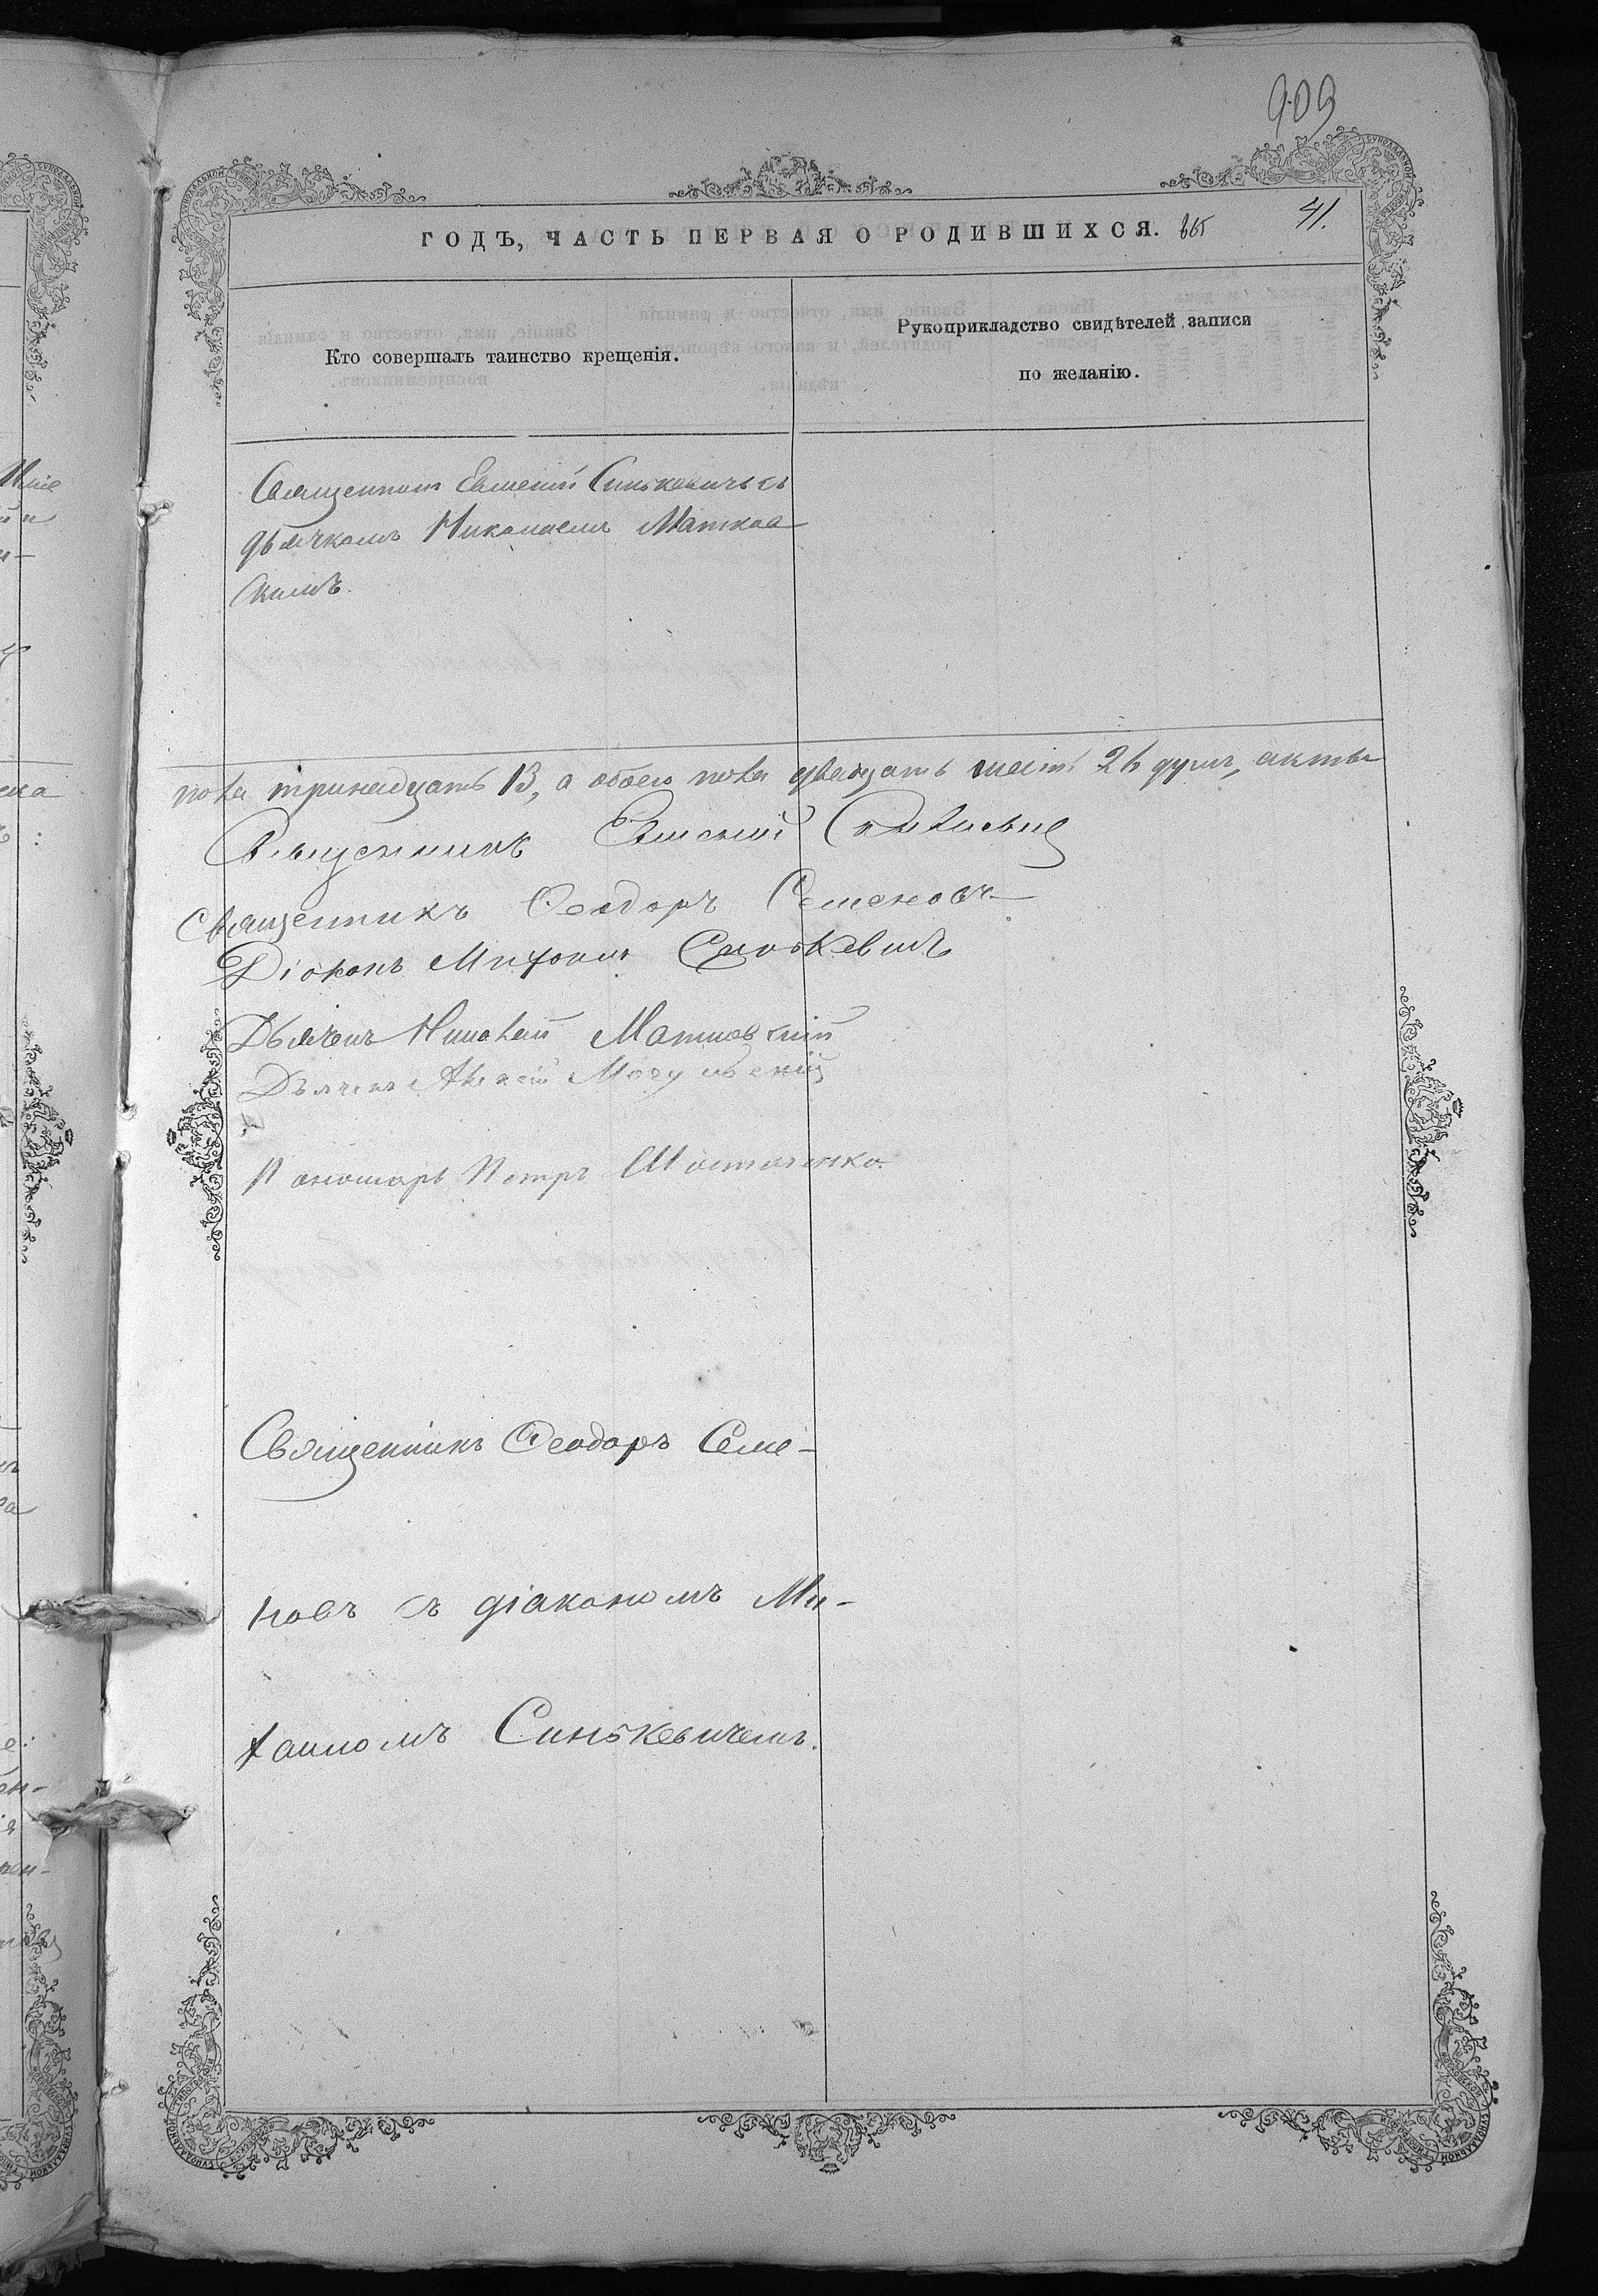 909
ГОДЪ, ЧАСТЬ ПЕРВАЯ О РОДИВШИХСЯ. 665 41.
Кто совершалъ таинство крещенія.
Рукоприкладство свидѣтелей записи
по желанію.
Священникъ Евменій Синькевичъ съ
дьячкомъ Николаемъ Матков
скимъ.
пола тринадцать 13, а обоего пола двадцать шесть 26 душъ, акты
Священникъ Евменій Синькевич
Священникъ Ѳеодоръ Семеновъ
Діаконъ Митрофанъ Синькевичъ
Дьячокъ Николай Матковскій
Дьячекъ Алексій Могульскій
Пономарь Петръ Шостаченко.
Священникъ Ѳеодоръ Семе-
новъ съ діакономъ Ми-
хаиломъ Синькевичемъ.